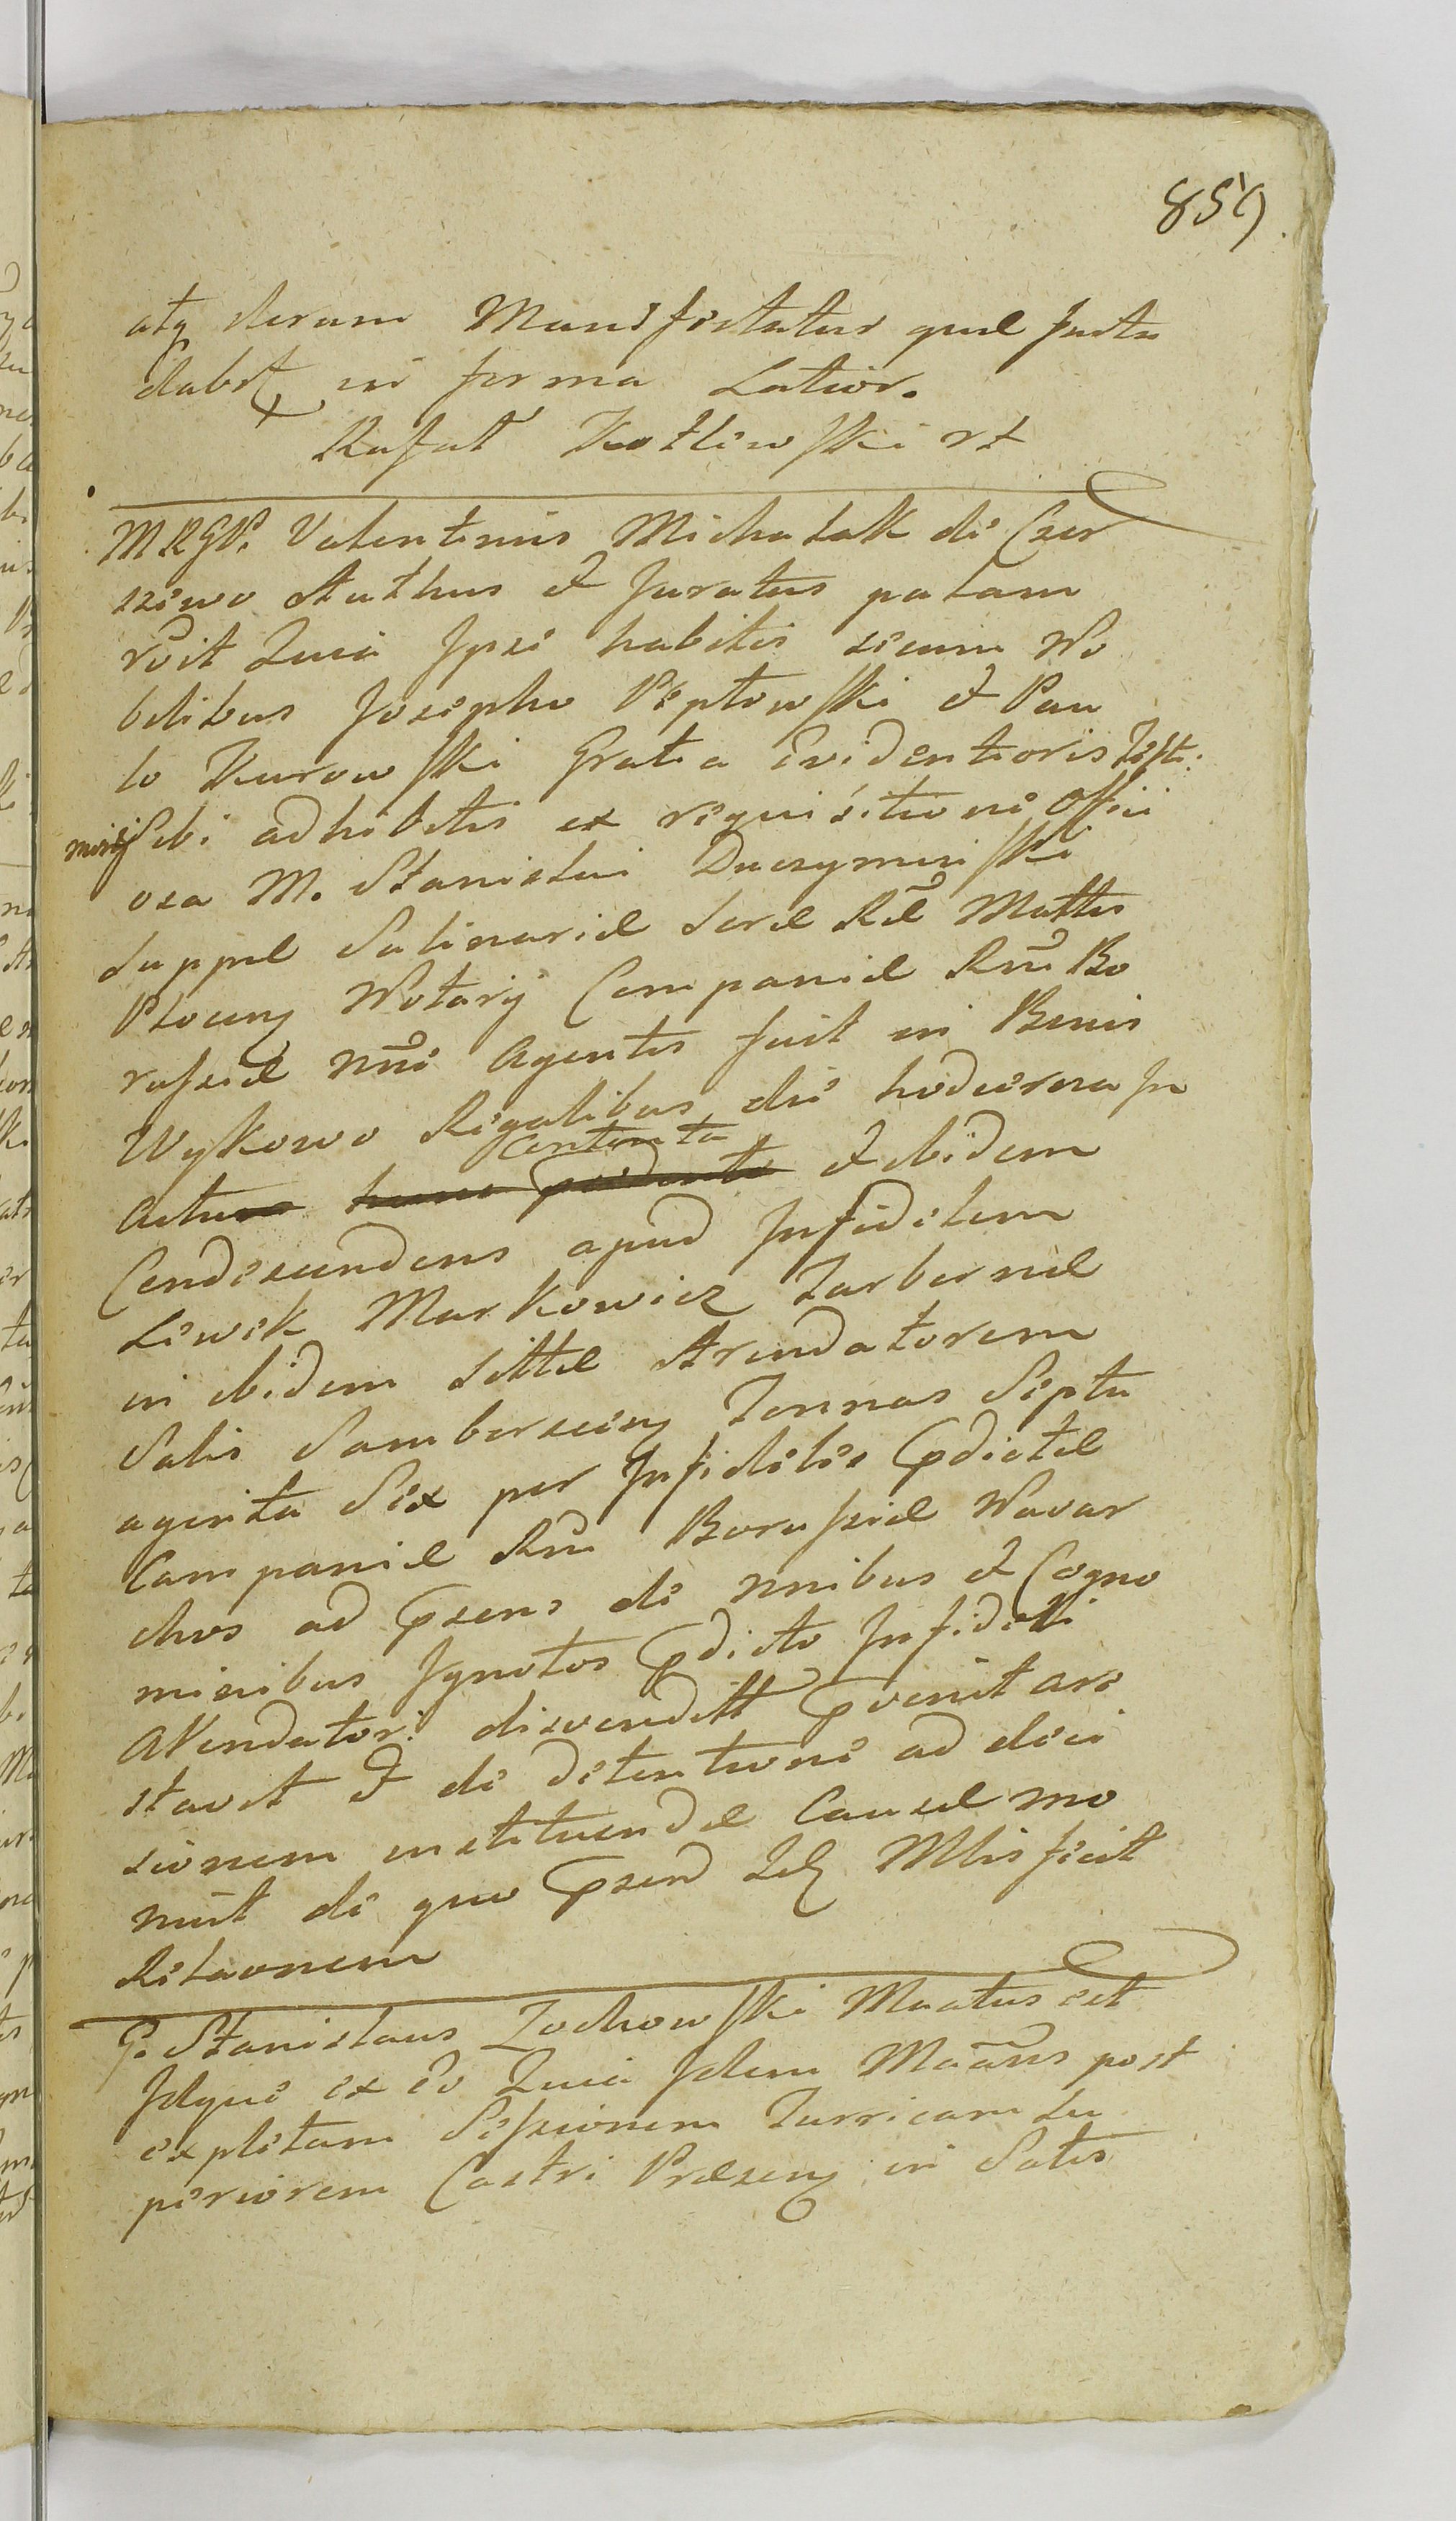 859
atq iterum Manifestatur quae juxta
dabit in forma Latior.
Rafał Kozłowski rt
MRGP. Valentinus Michalak de Czer
Authus et Juratus palam
rõit Quia Ipse habitis secum No
bilibus Josepho Peptowski et Pau
lo Kurowski Gratia Evidentioris Testi:
monij Sibi adhibitis ex requisitione Offici
osa M. Stanislai Duczyminski
Suppae Salinariae Serae Rae Mattis
Plocen Notarij Companiae Rm Bo
russiae nni Agentis fuit in Bonis
Wykowo Regalibus die hodierna in
Actu contenta et ibidem
Condescendens apud Infidelem
Lewek Markowicz Tabernae
in ibidem sittae Arendatorem
Salis Samborscien Tonnas Septu
aginta Sex per Infideles pdictae
Companiae Rm Borussiae Navar
chos ad psens de nnibus et Cogno
minibus Ignotos pdicto Infideli
Arendatori divenditt pvenit are
stavit et de detentione ad deci
sionem instituendae Causae mo
nuit de quo psend Mlis fecit
Relaonem
G. Stanislaus Zochowski Mnatus est
Idque ex eo Quia Idem Maans post
expletam Sessionem Turricam Su
periorem Castri Praesen in Satis